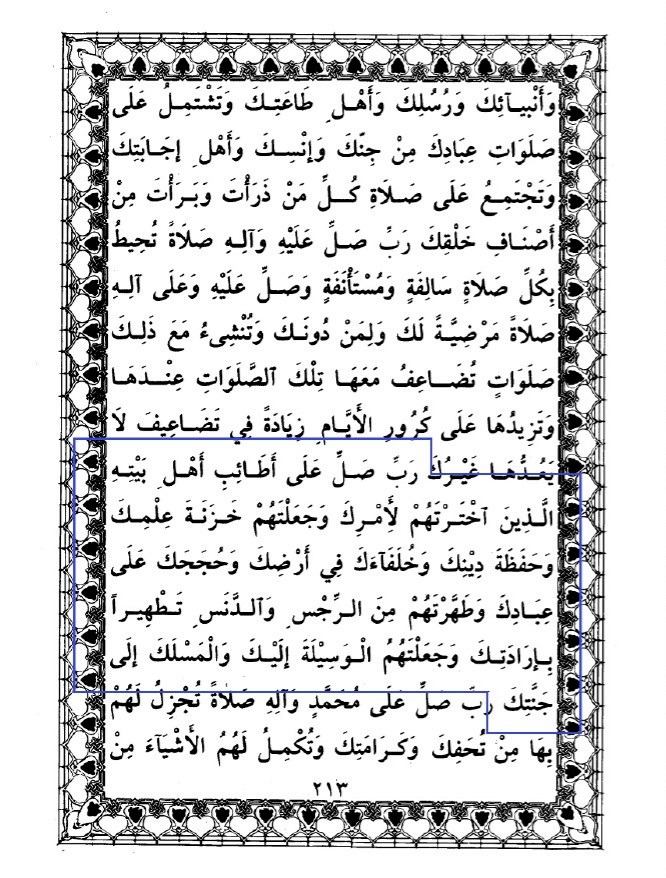 وَأَنْبِيـآئِكَ وَرُسُلِكَ وَأَهْـلِ طَاعَتِـكَ وَتَشْتَمِـلُ عَلَى
صَلَوَاتِ عِبَادِكَ مِنْ جِنِّكَ وَإنْسِـكَ وَأَهْلِ إجَابَتِكَ
وَتَجْتَمِـعُ عَلَى صَـلاَةِ كُـلِّ مَنْ ذَرَأْتَ وَبَـرَأْتَ مِنْ
أَصْنَـافِ خَلْقِكَ رَبِّ صَـلِّ عَلَيْهِ وَآلِـهِ صَلاَةً تُحِيطُ
بِكُلِّ صَلاَةٍ سَالِفَةٍ وَمُسْتَأْنَفَةٍ وَصَـلِّ عَلَيْهِ وَعَلَى آلِـهِ
صَلاَةً مَرْضِيَّـةً لَكَ وَلِمَنْ دُونَـكَ وَتُنْشِىءُ مَعَ ذَلِـكَ
صَلَوَاتٍ تُضَـاعِفُ مَعَهَـا تِلْكَ ٱلصَّلَوَاتِ عِنْـدَهَـا
وَتَزِيدُهَا عَلَى كُرُورِ الأَيَّـامِ زِيَادَةً فِي تَضَـاعِيفَ لاَ
يَعُـدُّهَـا غَيْـرُكَ رَبِّ صَـلِّ عَلَى أَطَائِبِ أَهْـلِ بَيْتِـهِ
الَّـذِينَ ٱخْتَـرْتَهُمْ لأَمْـرِكَ وَجَعَلْتَهُمْ خَـزَنَـةَ عِلْمِـكَ
وَحَفَظَةَ دِيْنِكَ وَخُلَفَآءَكَ فِي أَرْضِكَ وَحُجَجَكَ عَلَى
عِبَادِكَ وَطَهَّرْتَهُمْ مِنَ الـرِّجْسِ وَٱلـدَّنَسِ تَـطْهِيـراً
بِـإرَادَتِـكَ وَجَعَلْتَهُمُ الْـوَسِيْلَةَ إلَيْـكَ وَالْمَسْلَكَ إلَى
جَنَّتِكَ رَبِّ صَلِّ عَلَى مُحَمَّدٍ وَآلِهِ صَلاَةً تُجْزِلُ لَهُمْ
بِهَا مِنْ تُحَفِكَ وَكَـرَامَتِكَ وَتُكْمِـلُ لَهُمُ الأَشْيَآءَ مِنْ
٢١٣